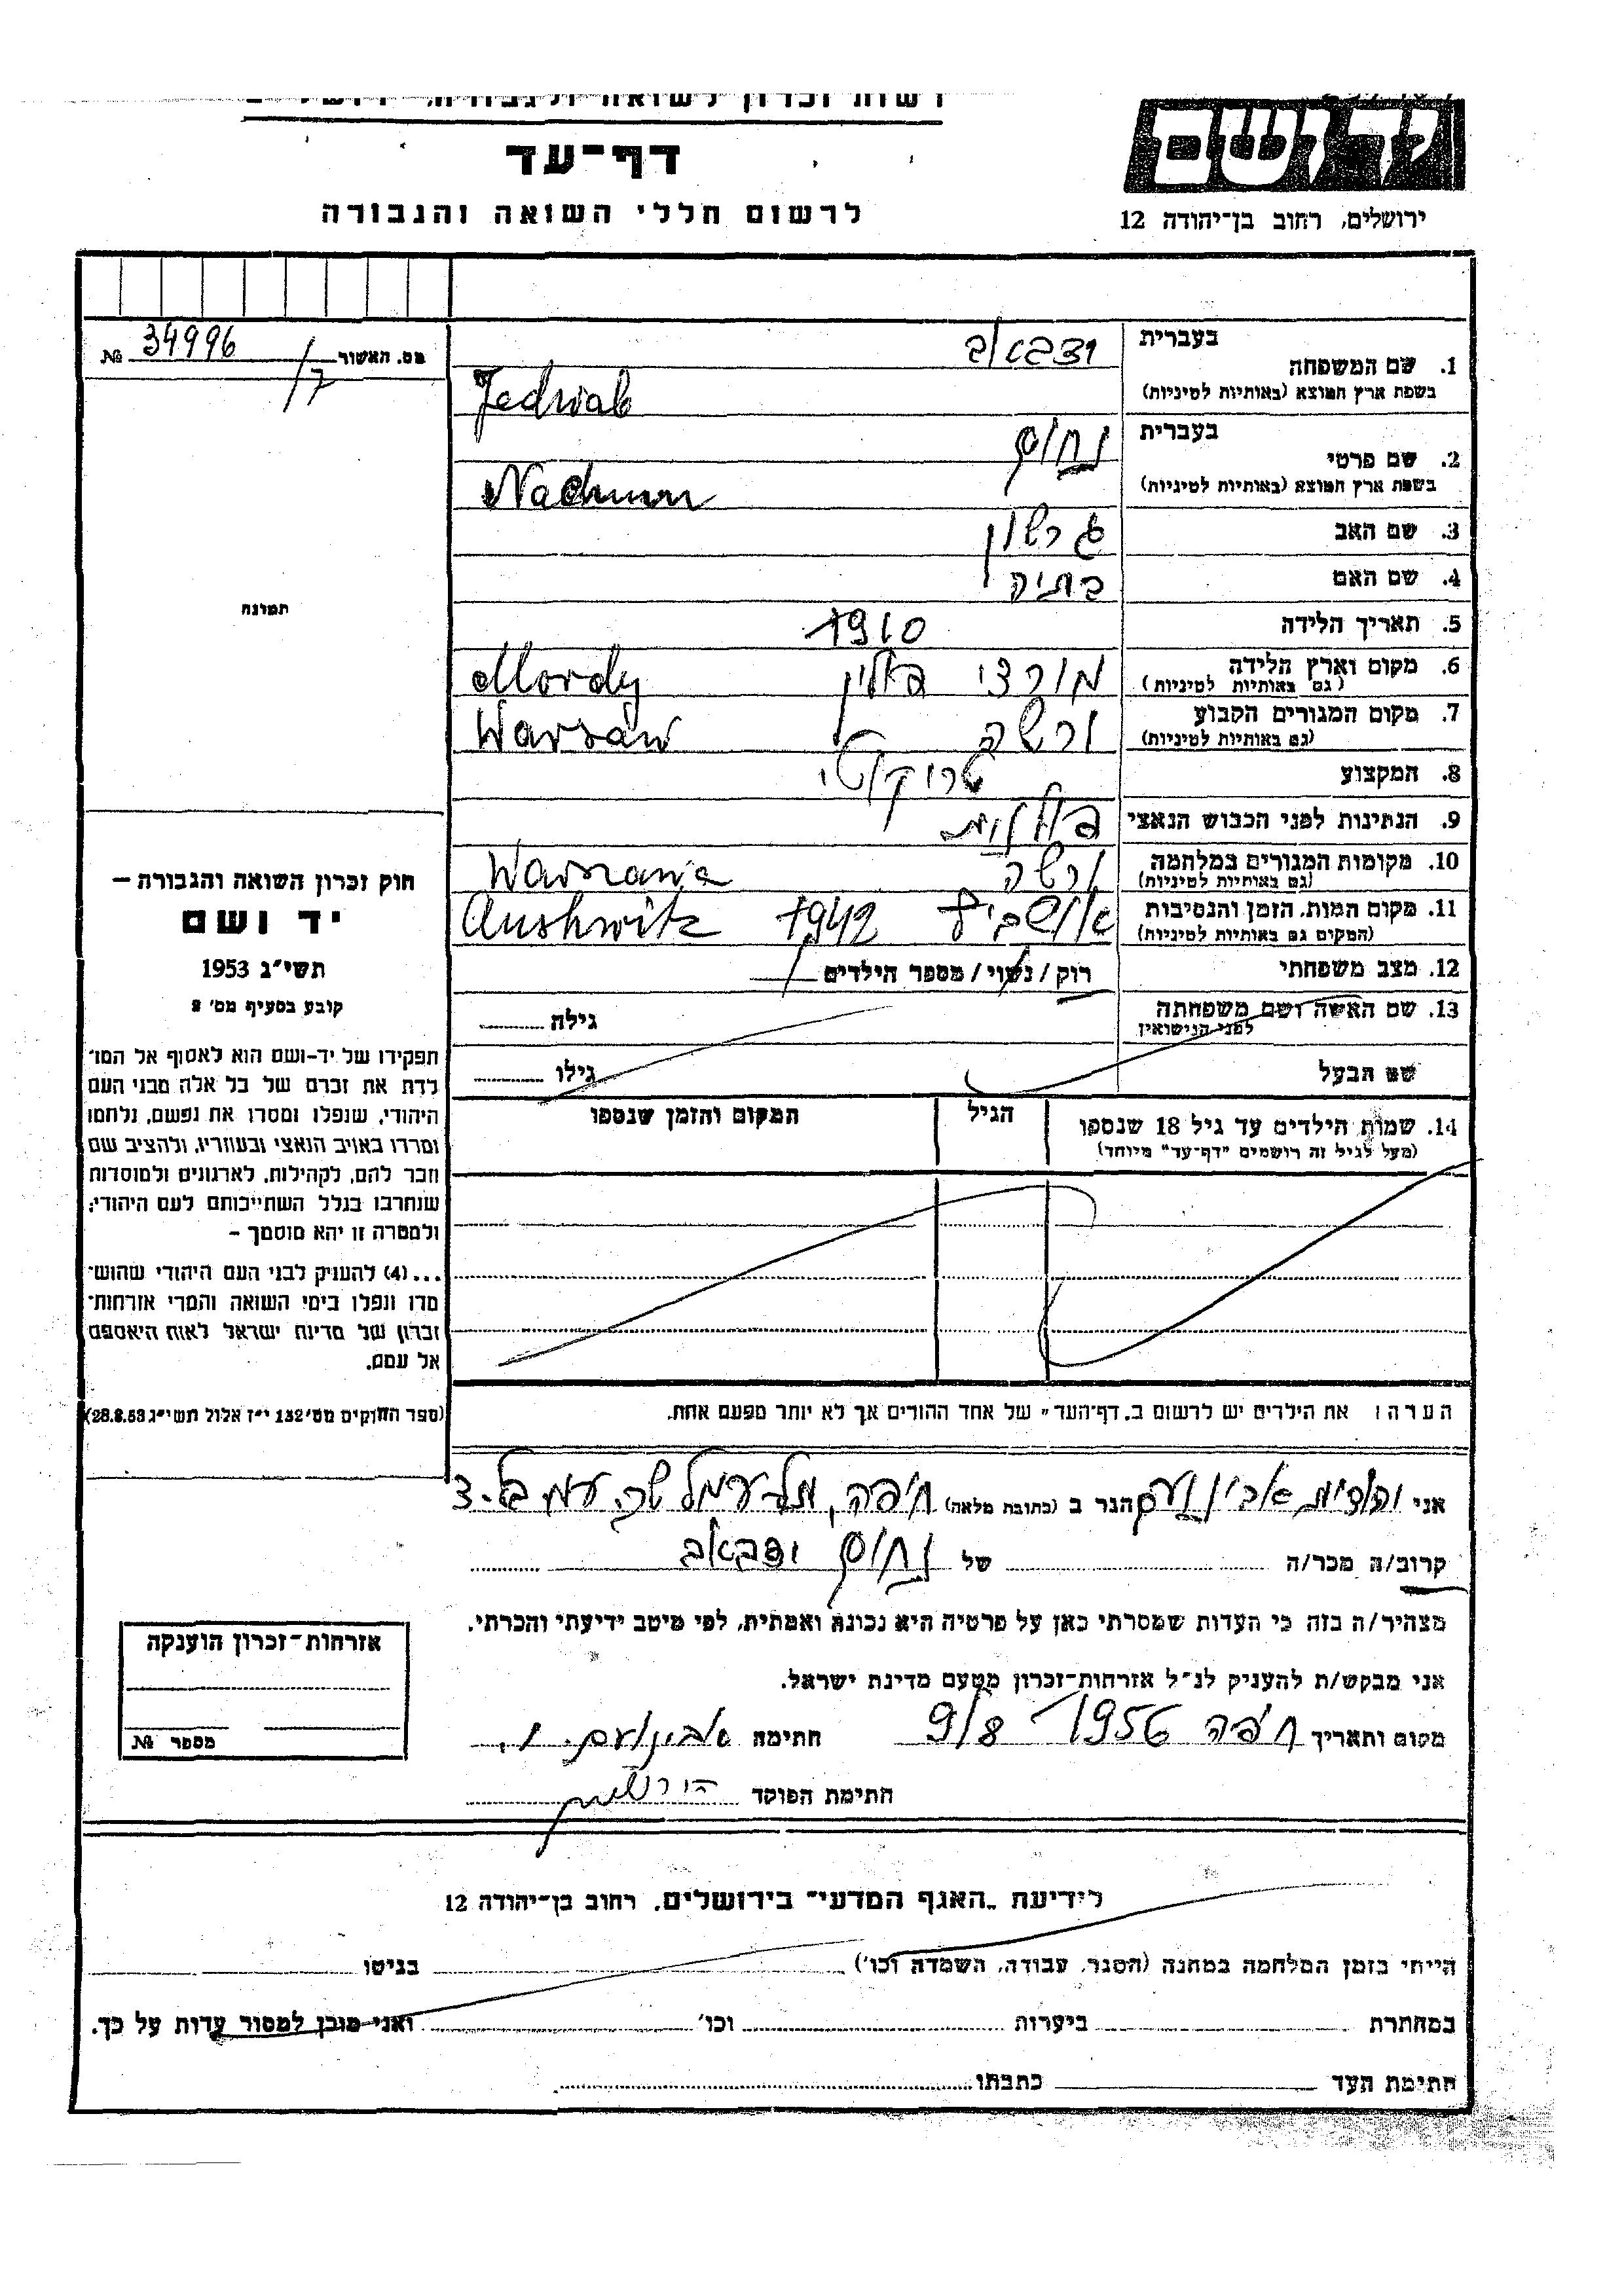 רשות זכרון לשואה ולגבורה, ירושלים
דף-עד
לרשום חללי השואה והגבורה
יד ושם
ירושלים, רחוב בן-יהודה 12
מס. האשור 34996 №
1. שם המשפחה
בעברית
בשפת ארץ המוצא (באותיות לטיניות)
Jedwab
2. שם פרטי
בעברית נחום
בשפת ארץ המוצא (באותיות לטיניות)
Nachum
3. שם האב גרשון
4. שם האם בתיה
5. תאריך הלידה 1910
6. מקום וארץ הלידה מורדי פולין Mordy
(גם באותיות לטיניות)
7. מקום המגורים הקבוע ורשה Warsaw
(גם באותיות לטיניות)
8. המקצוע
9. הנתינות לפני הכבוש הנאצי פולנית
10. מקומות המגורים במלחמה ורשה Warszawa
(גם באותיות לטיניות)
11. מקום המות, הזמן והנסיבות אושביץ 1942 Aushwitz
(המקום גם באותיות לטיניות)
12. מצב משפחתי רוק / נשוי / מספר הילדים
13. שם האשה ושם משפחתה גילה
לפני הנישואין
שם הבעל גילו
14. שמות הילדים עד גיל 18 שנספו הגיל המקום והזמן שנספו
(מעל לגיל זה רושמים "דף-עד" מיוחד)
הערה: את הילדים יש לרשום ב"דף-העד" של אחד ההורים אך לא יותר מפעם אחת.
תמונה
חוק זכרון השואה והגבורה –
יד ושם
תשי"ג 1953
קובע בסעיף מס' 2
תפקידו של יד-ושם הוא לאסוף אל המו־
לדת את זכרם של כל אלה מבני העם
היהודי, שנפלו ומסרו את נפשם, נלחמו
ומרדו באויב הנאצי ובעוזריו, ולהציב שם
וזכר להם, לקהילות, לארגונים ולמוסדות
שנחרבו בגלל השתייכותם לעם היהודי;
ולמטרה זו יהא מוסמך –
...(4) להעניק לבני העם היהודי שהוש־
מדו ונפלו בימי השואה והמרי אזרחות־
זכרון של מדינת ישראל לאות היאספם
אל עמם.
(ספר החוקים מס' 132 י"ז אלול תשי"ג 28.8.53)
אני יהודית אבינועם הגר ב (כתובת מלאה) חיפה,
קרוב/ה מכר/ה של נחום ידבאב
מצהיר/ה בזה כי העדות שמסרתי כאן על פרטיה היא נכונה ואמתית, לפי מיטב ידיעתי והכרתי.
אני מבקש/ת להעניק לנ"ל אזרחות-זכרון מטעם מדינת ישראל.
מקום ותאריך חיפה 9/8 1956 חתימה אבינועם. י.
חתימת הפוקד
אזרחות-זכרון הוענקה
מספר №
לידיעת "האגף המדעי" בירושלים, רחוב בן-יהודה 12
הייתי בזמן המלחמה במחנה (הסגר, עבודה, השמדה וכו') בגיטו
במחתרת ביערות וכו' ואני מוכן למסור עדות על כך.
חתימת העד כתבתו